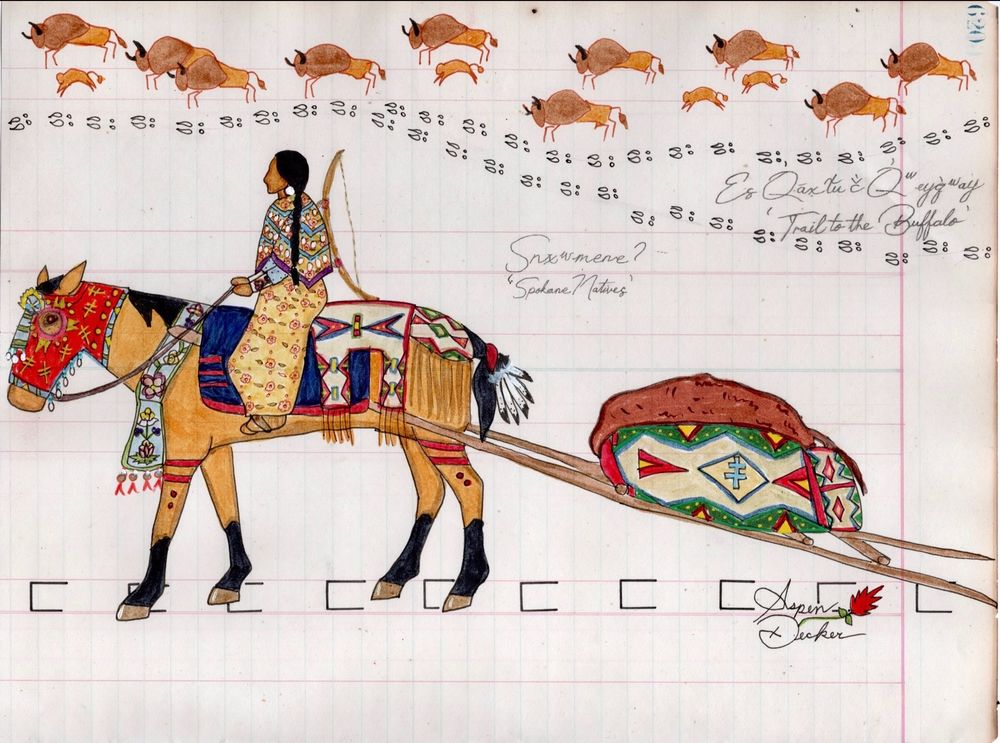 620
Es Q̓áx̌tu č Q̓ʷeyq̓ʷay
'Trail to the Buffalo'
Snxʷmene?
'Spokane Natives'
Aspen
Decker